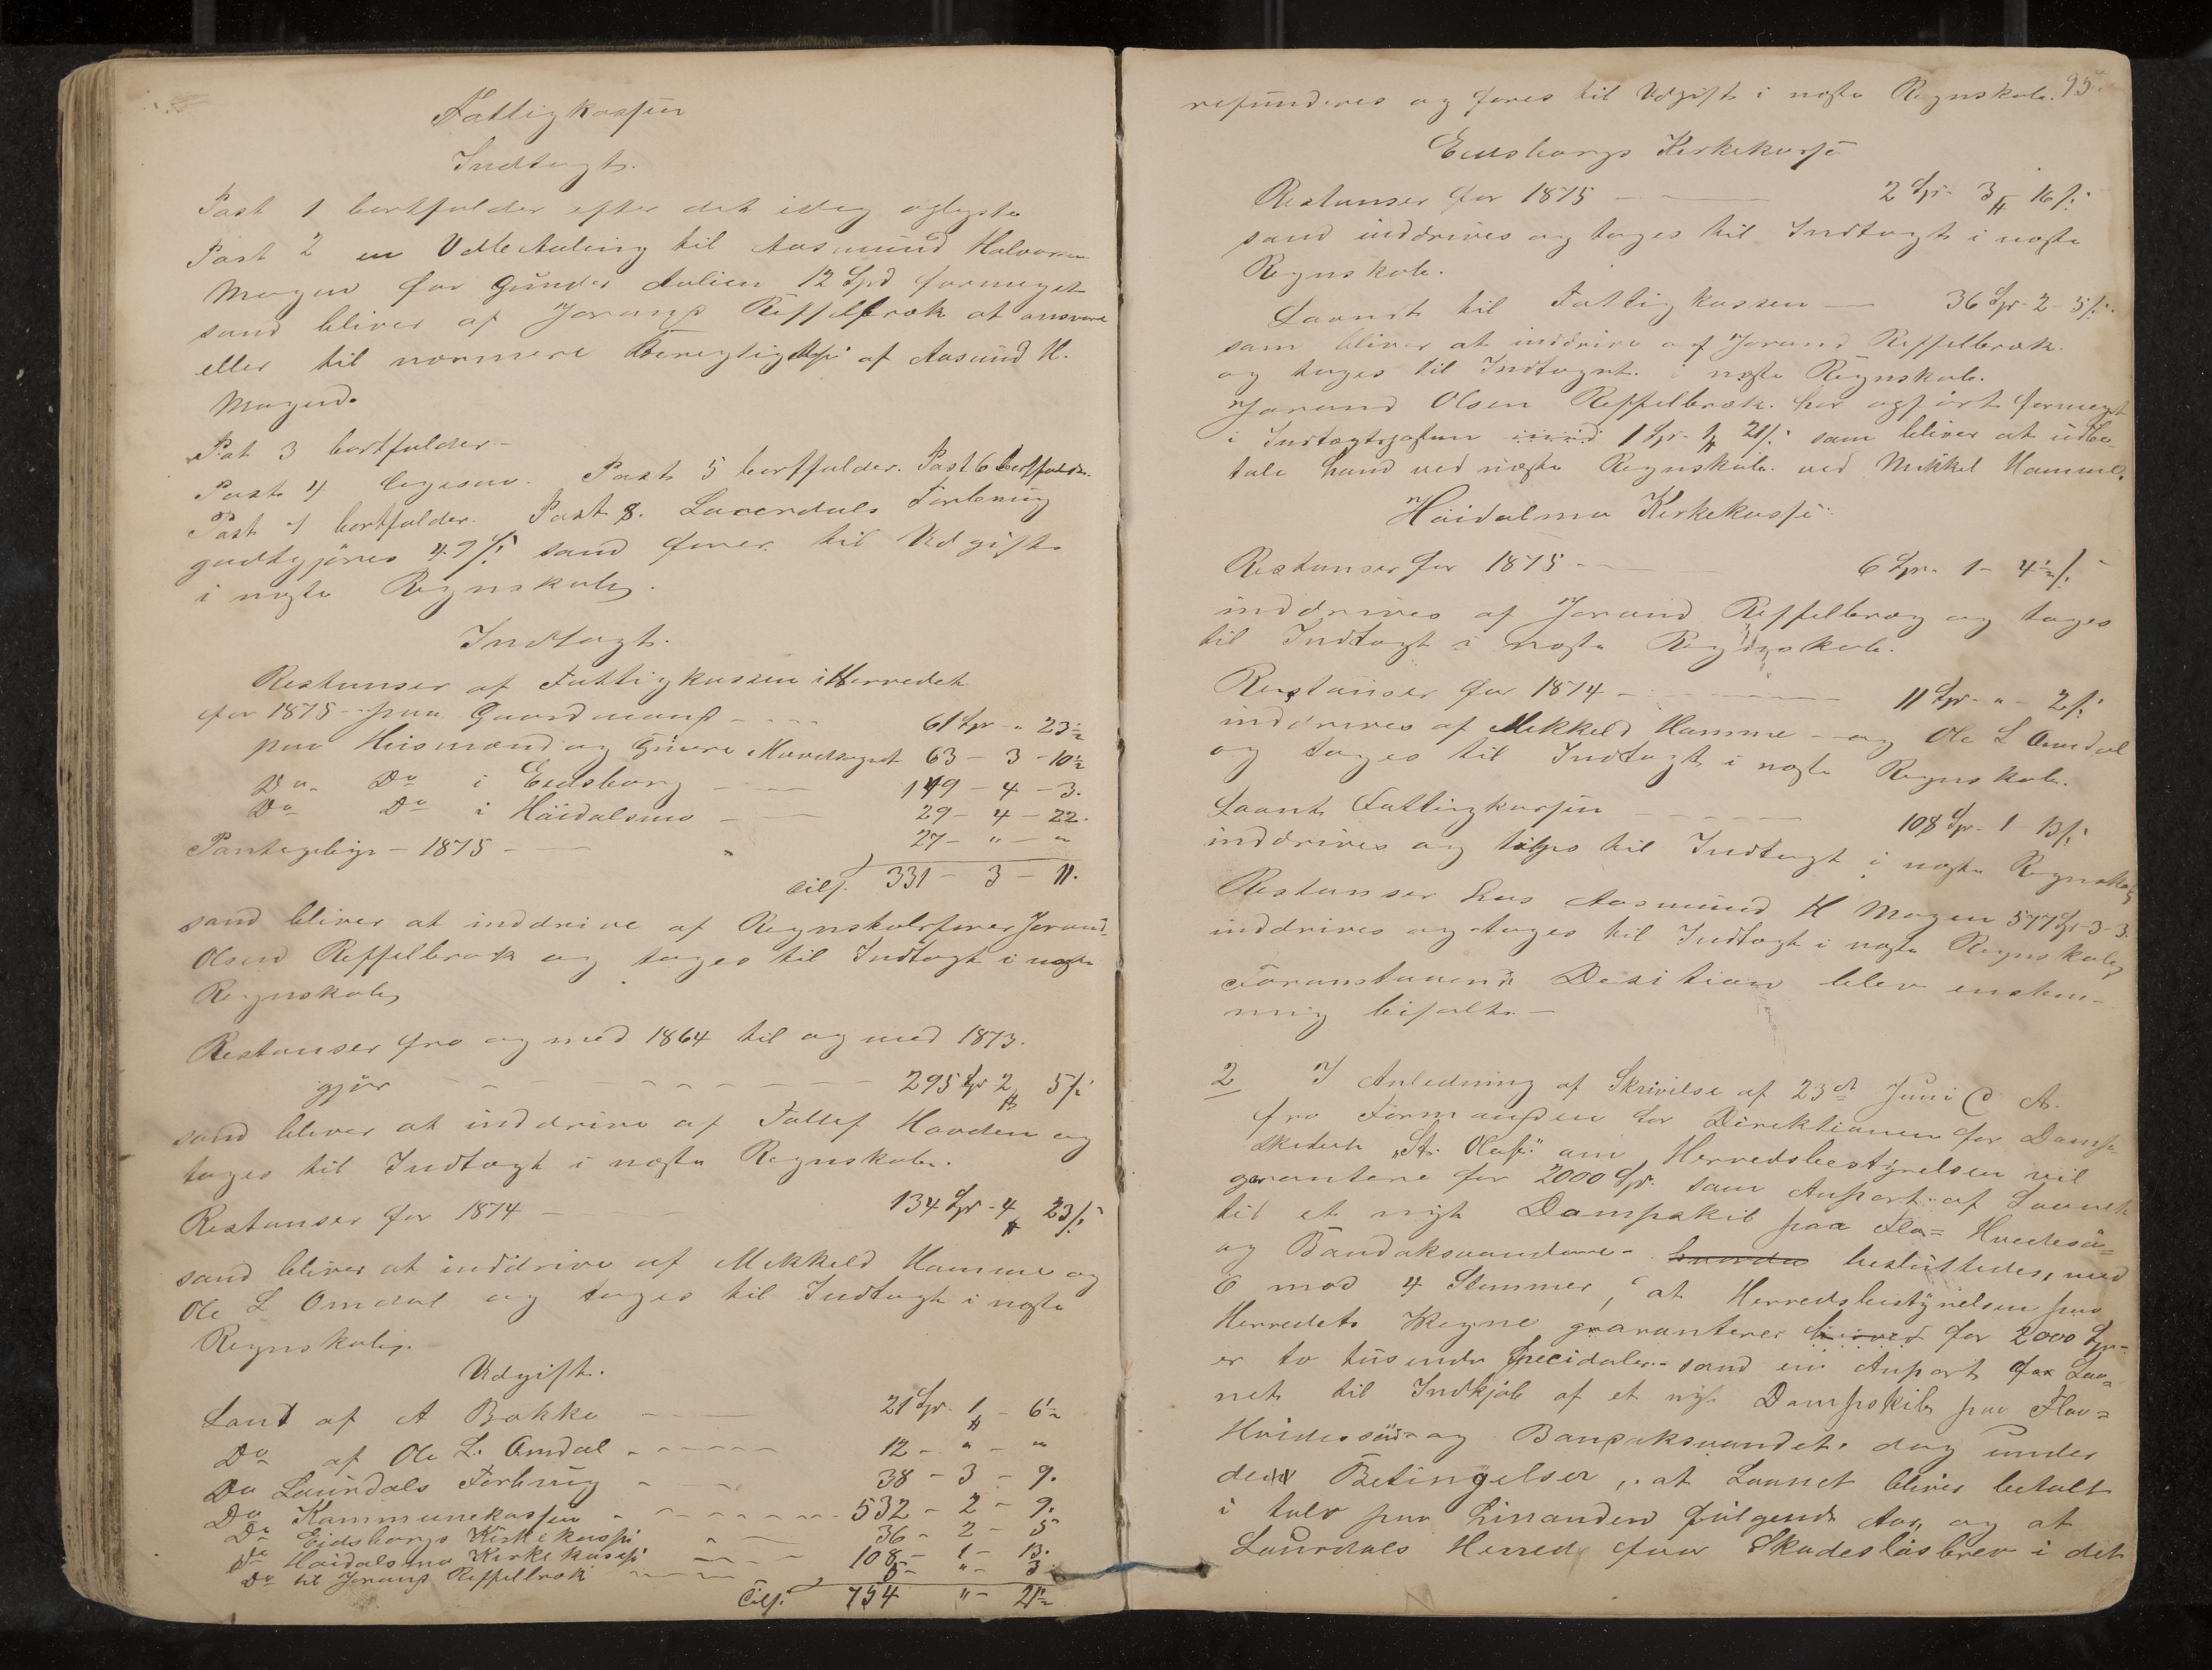 Fattigkassen
Indtægt.
Post 1 bortfalder efter det idag oplyste
Post 2 en Udbetaling til Aasmund Halvorsen
Mogen for Gunder Aalien 12 Spd formeget
som bliver af Jorand Reffelbræk at ansvare
eller til nærmere Beregtigelse af Aasund H.
Mogen.
Post 3 bortfalder-
Post 4 ligesaa. Post 5 bortfalder. Post 6 bortfalder.
Post 7 bortfalder. Post 8. Laverdals Forlening
godtgjøres 49 s. som fører til Udgift
i næste Regnskab.
Indtægt.
Restanser af Fattigkassen i Herredet
for 1875 - paa Gaardmænd - - - 61 Spr " 23½
paa Husmænd og Givere Hovedsognet 63 - 3 - 10½
Do Do i Eidsborg - - 149 - 4 - 3.
Do Do i Höidalsmo - - 29 - 4 - 22.
Pantegebyr - 1875 - - 27 - " - "
Tils. 331 - 3 - 11.
som bliver at inddrive af Regnskabsfører Jorand
Olsen Reffelbræk og tages til Indtægt i næste
Regnskab
Restanser fra og med 1864 til og med 1873.
gjør - - - - - 295 Spr 2 5 s
som bliver at inddrive af Tallef Hovden og
tages til Indtægt i næste Regnskab.
Restanser for 1874 - - 134 Spr - 4 23 s
som bliver at inddrive af Mekkeld Hamme og
Ole L Omdal og tages til Indtægt i næste
Regnskab.
Udgift.
Lant af A Bakke - - 21 Spr. 1 - 6½
Do af Ole L. Omdal - - - 12 - " - "
Do Laurdals Forbrug - - 38 - 3 - 9.
Do Kommunekassen - - - - 532 - 2 - 9.
Do Eidsborgs Kirkekasse - - 36 - 2 - 5
Do Höidalsmo Kirkekasse - - 108 - 1 - 13.
Do til Jorand Reffelbræk - - 5 - " - 3
Tils. 754 " - 21½
95.
refunderes og føres til Udgift i næste Regnskab.
Eidsborgs Kirkekasse
Restanser for 1875 - - 2 Spr. 3 16 s.
som inddrives og tages til Indtægt i næste
Regnskab.
Laant til Fattigkassen - 36 Spr - 2 - 5 s.
som bliver at inddrive af Jorand Reffelbræk.
og tages til Indtægt. i næste Regnskab.
Jorand Olsen Reffelbræk har opført formeget
i Indtægtsposten 1 Spr. 1 21 s. som bliver at udbe-
tale ham ved næste Regnskab. ved Mikkel Hamme.
Höidalsmo Kirkekasse
Restanser for 1875 - - 6 Spr. 1 - 4½ s.
inddrives af Jorand Reffelbræg og tages
til Indtægt i næste Regnskab.
Restanser for 1874 - - - 11 Spr. " - 2 s.
inddrives af Mekkeld Hamme - og Ole L Omdal
og tages til Indtægt i næste Regnskab.
Laant Fattigkassen - - - 108 Spr. 1 - 13 s.
inddrives og tages til Indtægt i næste Regnskab
Restanser hos Aasmund H Mogen 577 Spr - 3 - 3.
inddrives og tages til Indtægt i næste Regnskab
Foranstaaende Desition blev enstem-
mig bifalt. -
2 I Anledning af Skrivelse af 23de Juni C A.
fra Formanden for Direktionen for Damp-
skibet "St. Olaf" om Herredsbestyrelsen vil
garantere for 2000 Spr. som Anpart af Laanet
til et nyt Dampskib paa Flaa= Hvedesö=
og Bandaksvandene - besluttedes, med
6 mod 4 Stemmer, at Herredsbestyrelsen paa
Herredets Vegne garanterer for 2000 Spr.
er to tusende Specidaler - som en Anpart for Laa=
net til Indkjøb af et nyt Dampskib paa Flaa=
Hvidesöd= og Bandaksvandet. dog under
den Betingelser, at Laanet bliver betalt
i tolv paa hinanden følgende Aar, og at
Laurdals Herred faar Skadesløsbrev i det